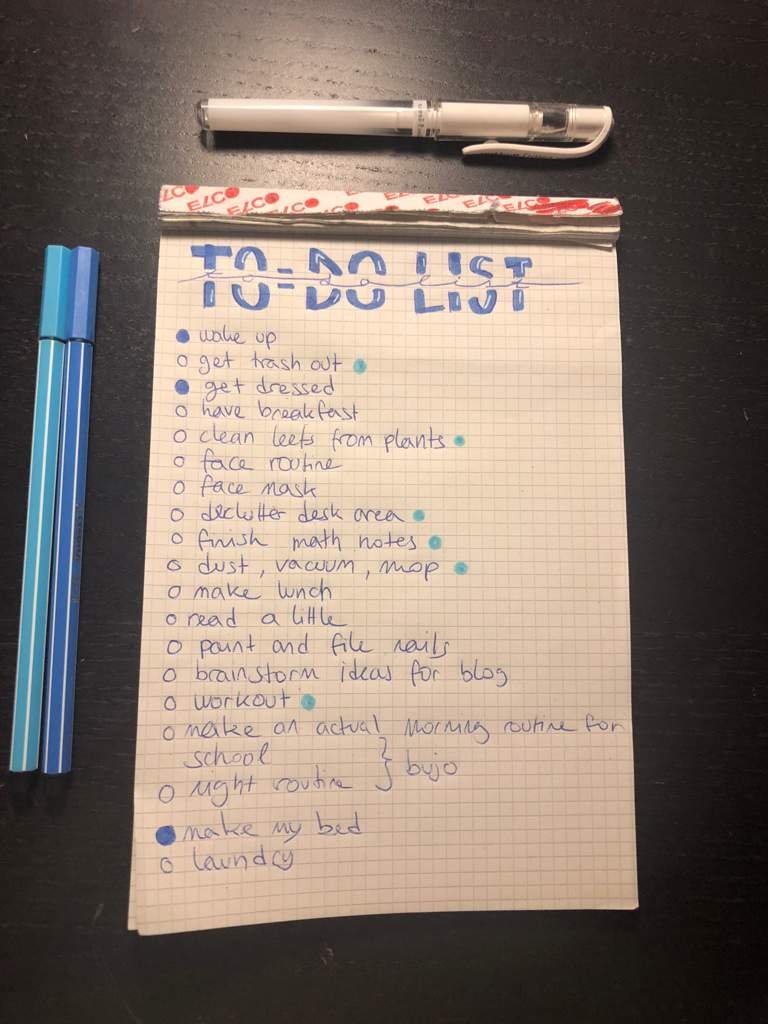 ELCO ELCO ELCO ELCO ELCO
TO-DO LIST
to do list
wake up
get trash out
get dressed
have breakfast
clean leefs from plants
face routine
face mask
declutter desk area
finish math notes
dust, vacuum, mop
make lunch
read a little
paint and file nails
brainstorm ideas for blog
workout
make an actual morning routine for
school } bujo
night routine
make my bed
laundry